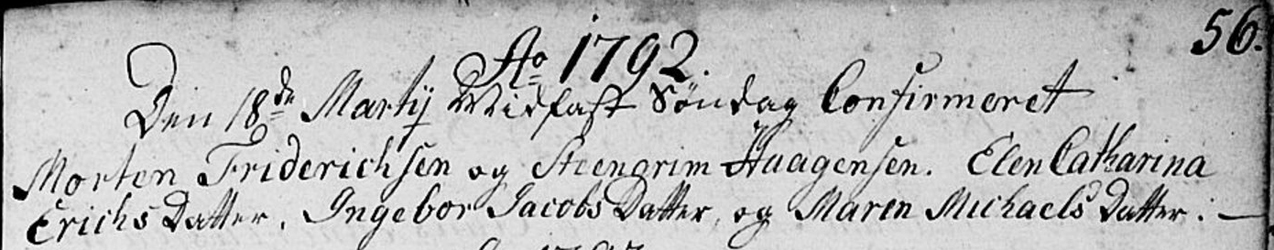 56.
Ao 1792.
Den 18de Martij Midfast Söndag Confirmeret
Morten Friderichsen og Steengrim Haagensen. Elen Catharina
Erichs Datter, Ingebor Jacobs Datter, og Maren Michaels Datter. —